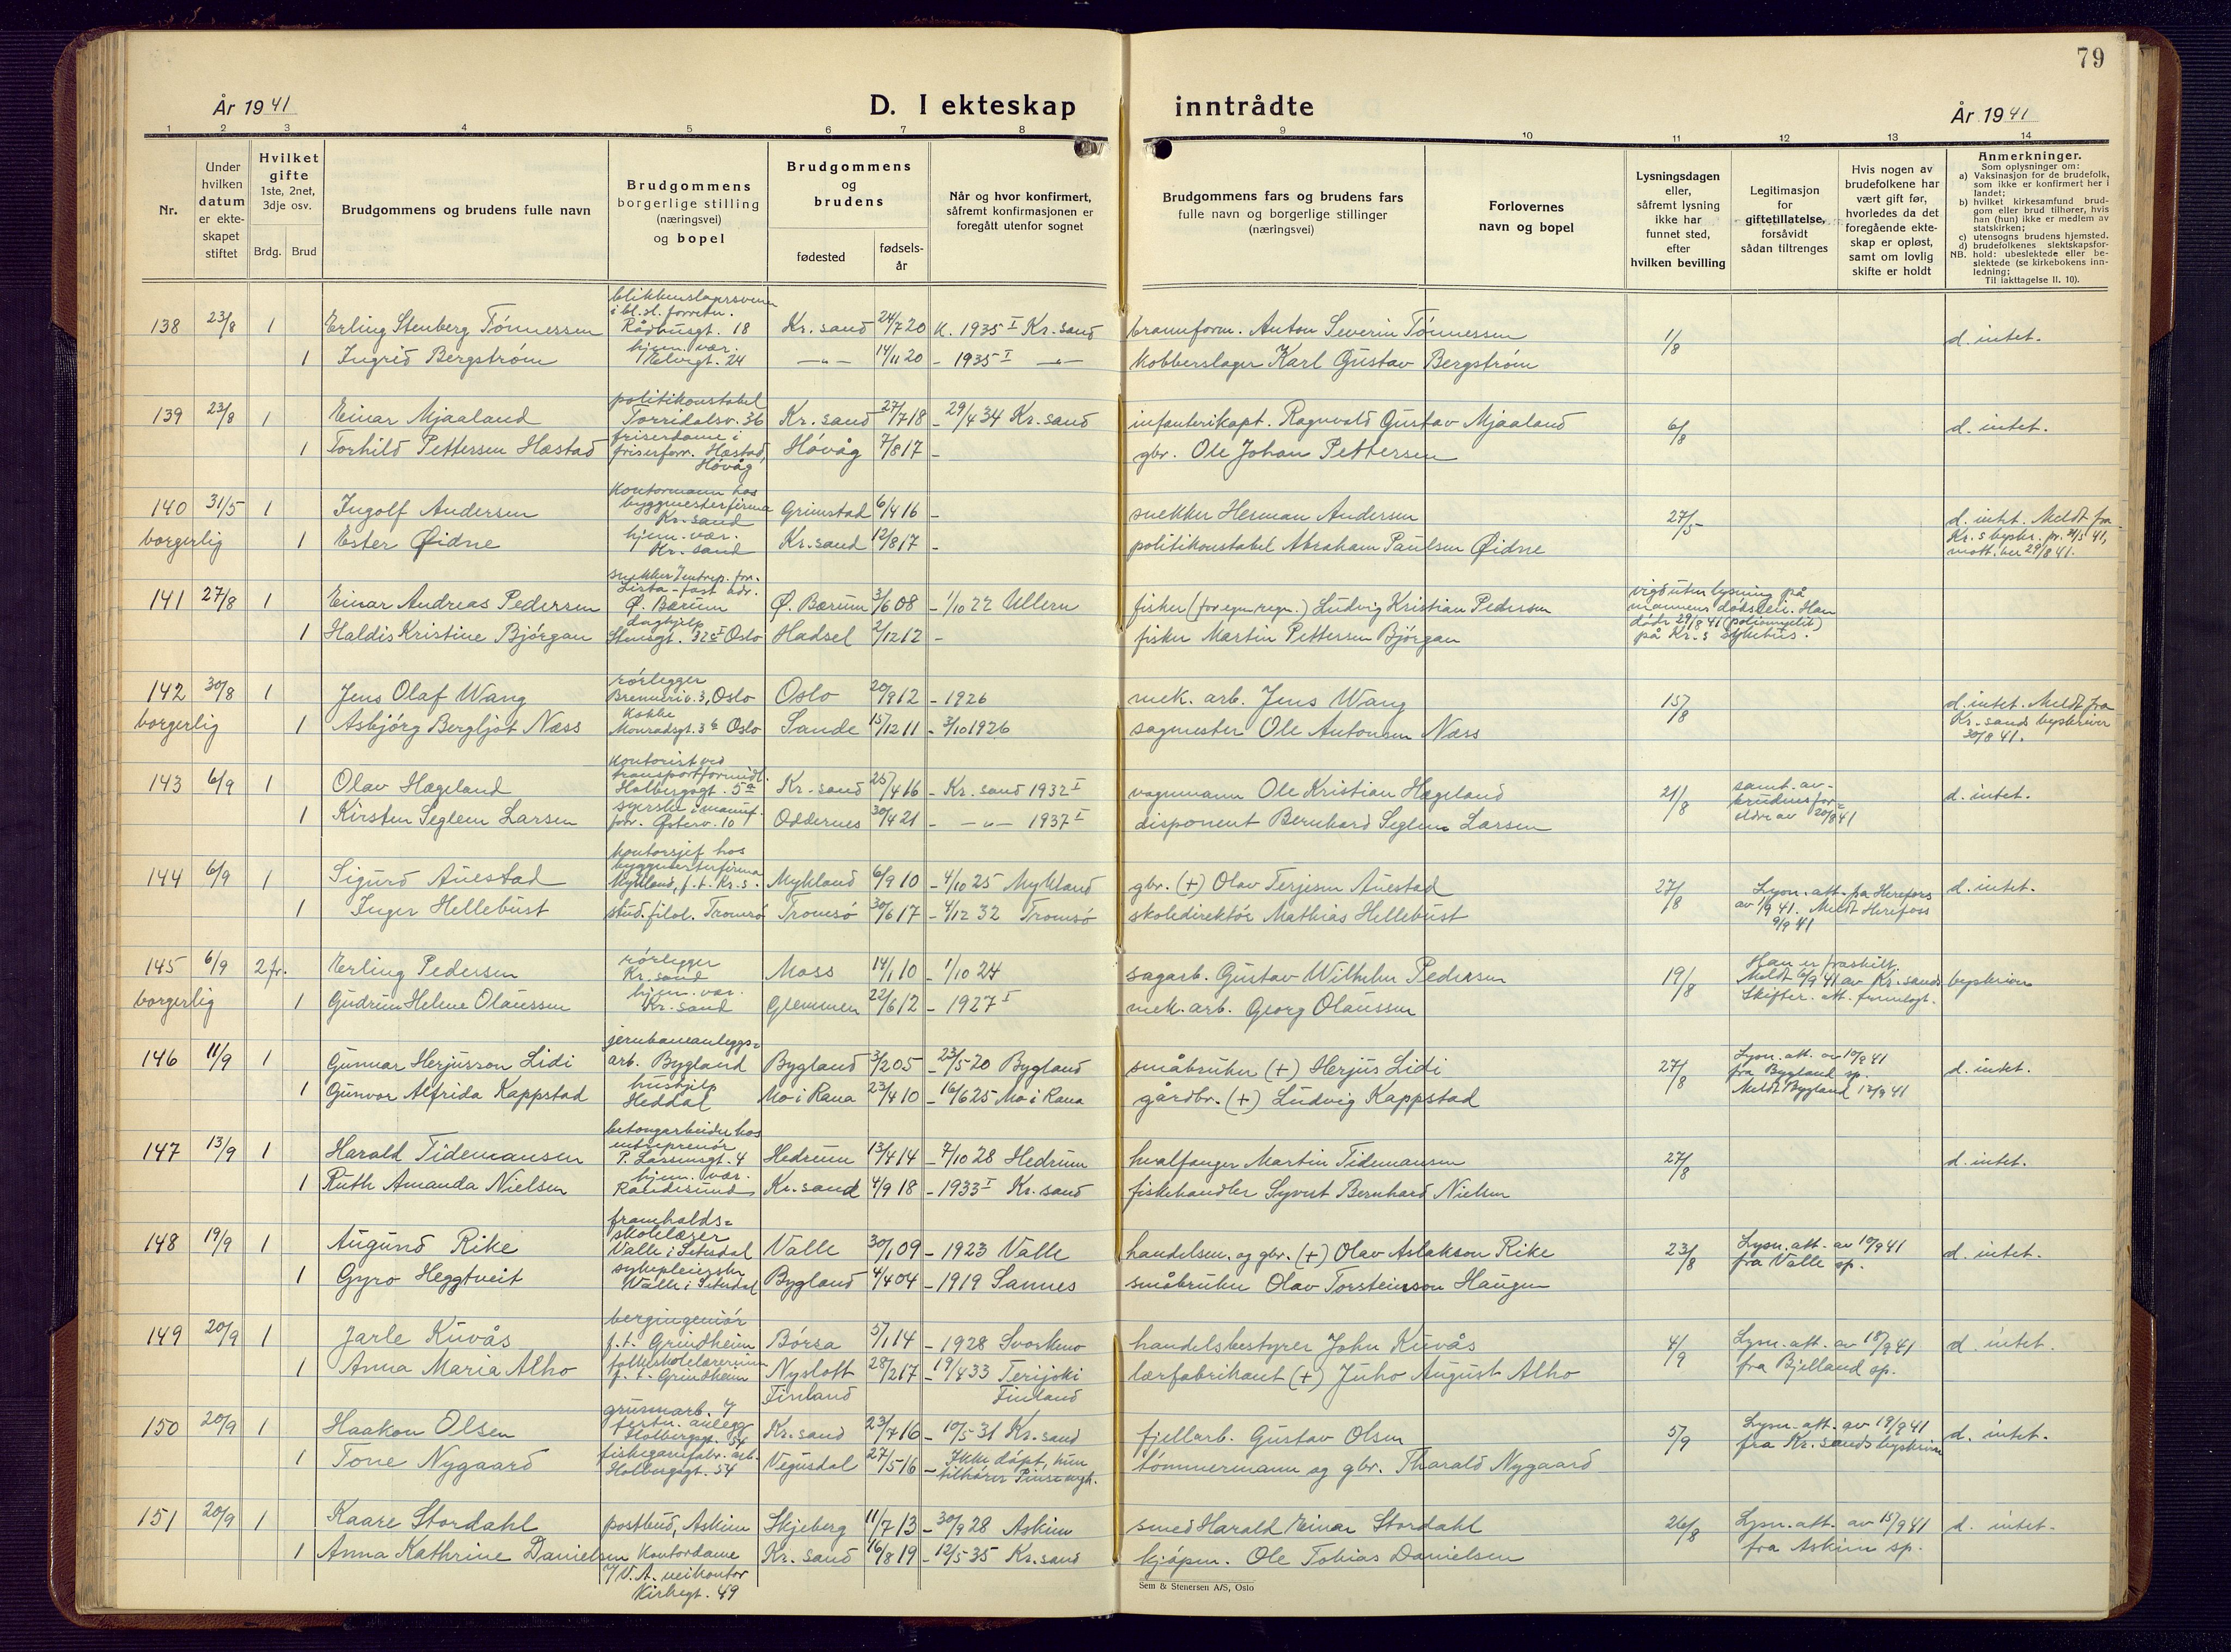 79
År 1941
D. I ekteskap inntrådte
År 1941
1 2 3 4 5 6 7 8 9 10 11 12 13 14
Nr.
Under hvilken datum er ekteskapet stiftet
Hvilket gifte 1ste, 2net, 3dje osv.
Brdg. Brud
Brudgommens og brudens fulle navn
Brudgommens borgerlige stilling (næringsvei) og bopel
Brudgommens og brudens
fødested
fødselsår
Når og hvor konfirmert, såfremt konfirmasjonen er foregått utenfor sognet
Brudgommens fars og brudens fars fulle navn og borgerlige stillinger (næringsvei)
Forlovernes navn og bopel
Lysningsdagen eller, såfremt lysning ikke har funnet sted, efter hvilken bevilling
Legitimasjon for giftetillatelse, forsåvidt sådan tiltrenges
Hvis nogen av brudefolkene har vært gift før, hvorledes da det foregående ekteskap er opløst, samt om lovlig skifte er holdt
Anmerkninger.
Som oplysninger om:
a) Vaksinasjon for de brudefolk, som ikke er konfirmert her i landet;
b) hvilket kirkesamfund brudgom eller brud tilhører, hvis han (hun) ikke er medlem av statskirken;
c) utensogns brudens hjemsted.
d) brudefolkenes slektskapsforhold: ubeslektede eller beslektede (se kirkebokens innledning;
NB.
Til iakttagelse II. 10).
138 23/8 1 Erling Stenberg Tønnessen blikkenslagersvenn i bl.sl. forretn. Rådhusgt. 18 Kr.sand 24/7 20 K. 1935 I Kr.sand brannform. Anton Severin Tønnessen 1/8 d. intet.
1 Ingrid Bergstrøm hjem. vær. Elvegt. 24 —"— 14/11 20 - 1935 I —"— kobberslager Karl Gustav Bergstrøm
139 23/8 1 Einar Mjaaland politikonstabel Torridalsv. 36 Kr.sand 27/7 18 - 29/4 34 Kr.sand infanterikapt. Ragnvald Gustav Mjaaland 6/8 d. intet.
1 Torhild Pettersen Hæstad friserdame i friserforr. Hæstad, Høvåg Høvåg 7/8 17 - gbr. Ole Johan Pettersen
140 31/5 1 Ingolf Andersen kontormann hos byggmesterfirma Kr.sand Grimstad 6/4 16 - snekker Herman Andersen 27/5 d. intet. Meldt fra Kr.s byskr. pr. 31/5 41, mott. her 29/8 41.
borgerlig 1 Ester Øidne hjem. vær. Kr.sand Kr.sand 12/8 17 - politikonstabel Abraham Paulsen Øidne
141 27/8 1 Einar Andreas Pedersen snekker Lista - fast adr. Ø. Bærum Ø. Bærum 3/6 08 - 1/10 22 Ullern fisker (for egen regn.) Ludvig Kristian Pedersen vigd uten lysning på mannens dødsleie. Han døde 29/8 41 (poliomyelit) på Kr.s sykehus.
1 Haldis Kristine Bjørgan daghjelp Stensgt. 32 I Oslo Hadsel 2/12 12 - fisker Martin Pettersen Bjørgan
142 30/8 1 Jens Olaf Wang rørlegger Brenneriv. 3, Oslo Oslo 20/9 12 - 1926 mek. arb. Jens Wang 15/8 d. intet. Meldt fra Kr.sands byskriver 30/8 41.
borgerlig 1 Asbjørg Bergljot Næss kokke Monradsgt. 3 Oslo Sande 15/12 11 - 3/10 1926 sagmester Ole Antonsen Næss
143 6/9 1 Olav Hægeland kontorist ved transportformidl. Holbergsgt. 5a Kr.sand 25/4 16 - Kr.sand 1932 I vognmann Ole Kristian Hægeland 21/8 samt. av brudens foreldre av 20/8 41 d. intet.
1 Kirsten Seglem Larsen syerske i manuf. forr. Østerv. 10 Oddernes 30/4 21 - —"— 1937 I disponent Bernhard Seglem Larsen
144 6/9 1 Sigurd Auestad kontorsjef hos byggmesterfirma Mykland, f.t. Kr.s. Mykland 6/9 10 - 4/10 25 Mykland gbr. (+) Olav Terjesen Auestad 27/8 Lysn. att. fra Herefoss av 1/9 41. Meldt Herefoss 9/9 41 d. intet.
1 Inger Hellebust stud. filol. Tromsø Tromsø 30/6 17 - 4/12 32 Tromsø skoledirektør Mathias Hellebust
145 6/9 2 fr. Erling Pedersen rørlegger Kr.sand Moss 14/1 10 - 1/10 24 sagarb. Gustav Wilhelm Pedersen 19/8 Han er fraskilt. Meldt 6/9 41 av Kr.sands byskriver Skifter. att. fremlagt.
borgerlig 1 Gudrun Helene Olaussen hjem. vær. Kr.sand Glemmen 22/6 12 - 1927 I mek. arb. Georg Olaussen
146 11/9 1 Gunnar Herjusson Lidi jernbaneanleggsarb. Bygland Bygland 3/2 05 - 23/5 20 Bygland småbruker (+) Herjus Lidi 27/8 Lysn. att. av 10/9 41 fra Bygland sp. Meldt Bygland 12/9 41 d. intet.
1 Gunvor Alfrida Kappstad hushjelp Heddal Mo i Rana 23/4 10 - 16/6 25 Mo i Rana gårdbr. (+) Ludvig Kappstad
147 13/9 1 Harald Tidemansen betongarbeider hos entreprenør P. Larsensgt. 4 Hedrum 13/4 14 - 7/10 28 Hedrum hvalfanger Martin Tidemansen 27/8 d. intet.
1 Ruth Amanda Nielsen hjem. vær. Randesund Kr.sand 4/9 18 - 1933 I Kr.sand fiskehandler Syvert Bernhard Nielsen
148 19/9 1 Augund Rike framhaldsskolelærer Valle i Setesdal Valle 30/1 09 - 1923 Valle handelsm. og gbr. (+) Olav Aslakson Rike 23/8 Lysn. att. av 10/9 41 fra Valle sp. d. intet.
1 Gyro Heggtveit sykepleierske Valle i Setesdal Bygland 4/4 04 - 1919 Sannes småbruker Olav Torsteinsson Haugen
149 20/9 1 Jarle Kuvås bergingeniør f.t. Grindheim Børsa 5/1 14 - 1928 Svorkmo handelsbestyrer John Kuvås 4/9 Lysn. att. av 18/9 41 fra Bjelland sp. d. intet.
1 Anna Maria Alho folkeskolelærerinne f.t. Grindheim Nyslott Finland 28/2 17 - 19/4 33 Terijoki Finland lærfabrikant (+) Juho August Alho
150 20/9 1 Haakon Olsen grusarb. v/ festn. anlegg Holbergsgt. 54 Kr.sand 23/7 16 - 10/5 31 Kr.sand fjellarb. Gustav Olsen 5/9 Lysn. att. av 19/9 41 fra Kr.sands byskriver d. intet.
1 Tone Nygaard fiskegarnfabr. arb. Holbergsgt. 54 Vegusdal 27/5 16 - Ikke døpt, hun tilhører Pinsemgh. tømmermann og gbr. Tharald Nygaard
151 20/9 1 Kaare Stordahl postbud, Askim Skjeberg 11/7 13 - 30/9 28 Askim smed Harald Einar Stordahl 26/8 Lysn. att. av 15/9 41 fra Askim sp. d. intet.
1 Anna Kathrine Danielsen kontordame v/ V.A. veikontor Kirkegt. 49 Kr.sand 16/8 19 - 12/5 35 Kr.sand kjøpm. Ole Tobias Danielsen
Sem & Stenersen A/S, Oslo